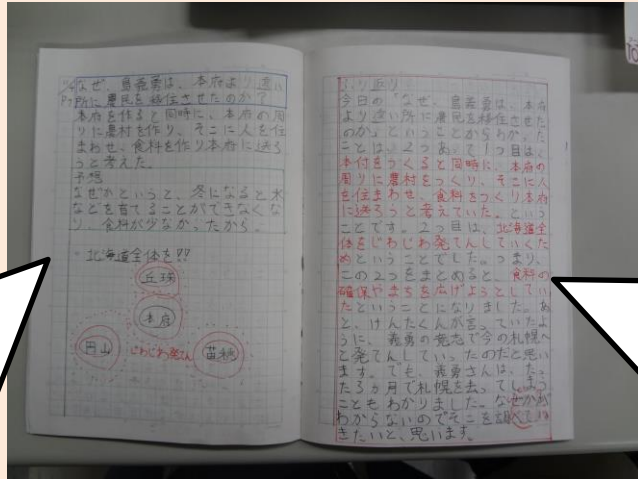 なぜ、島義勇は、本府より遠い
所に農民を移住させたのか?
本府を作ると同時に、本府の周
りに農村を作り、そこに人を住
まわせ、食料を作り本府に送ろ
うと考えた。
予想
なぜかというと、冬になると米
などを育てることができなくな
り、食料が少なかったから。
北海道全体を!!
丘珠
本府
円山
じわじわ発てん
苗穂
ふり返り
今日の「なぜ、島義勇は、本府
より遠い所に農民を移住させた
のか」ということからわかった
ことは、2つあって1つ目は、
本府をつくると同時に、本府の
周りに農村をつくり、そこに人
を住まわせ、食料をつくり本府
に送ろうと考えていた。という
ことです。2つ目は、北海道全
体をじわじわ発てんしていくた
めということでした。つまり、
この2つをまとめると、食料の
確保やまちを広げようとしてい
たということになりました。あ
と、けんたくんが言っていたよ
うに、義勇の意志で今の札幌へ
と発てんしていったのだと思い
ます。でも、義勇さんは、たっ
た3ヵ月で札幌を去ってしまう
こともわかりました。なぜかは
わからないのでそこを調べてい
きたいと、思います。